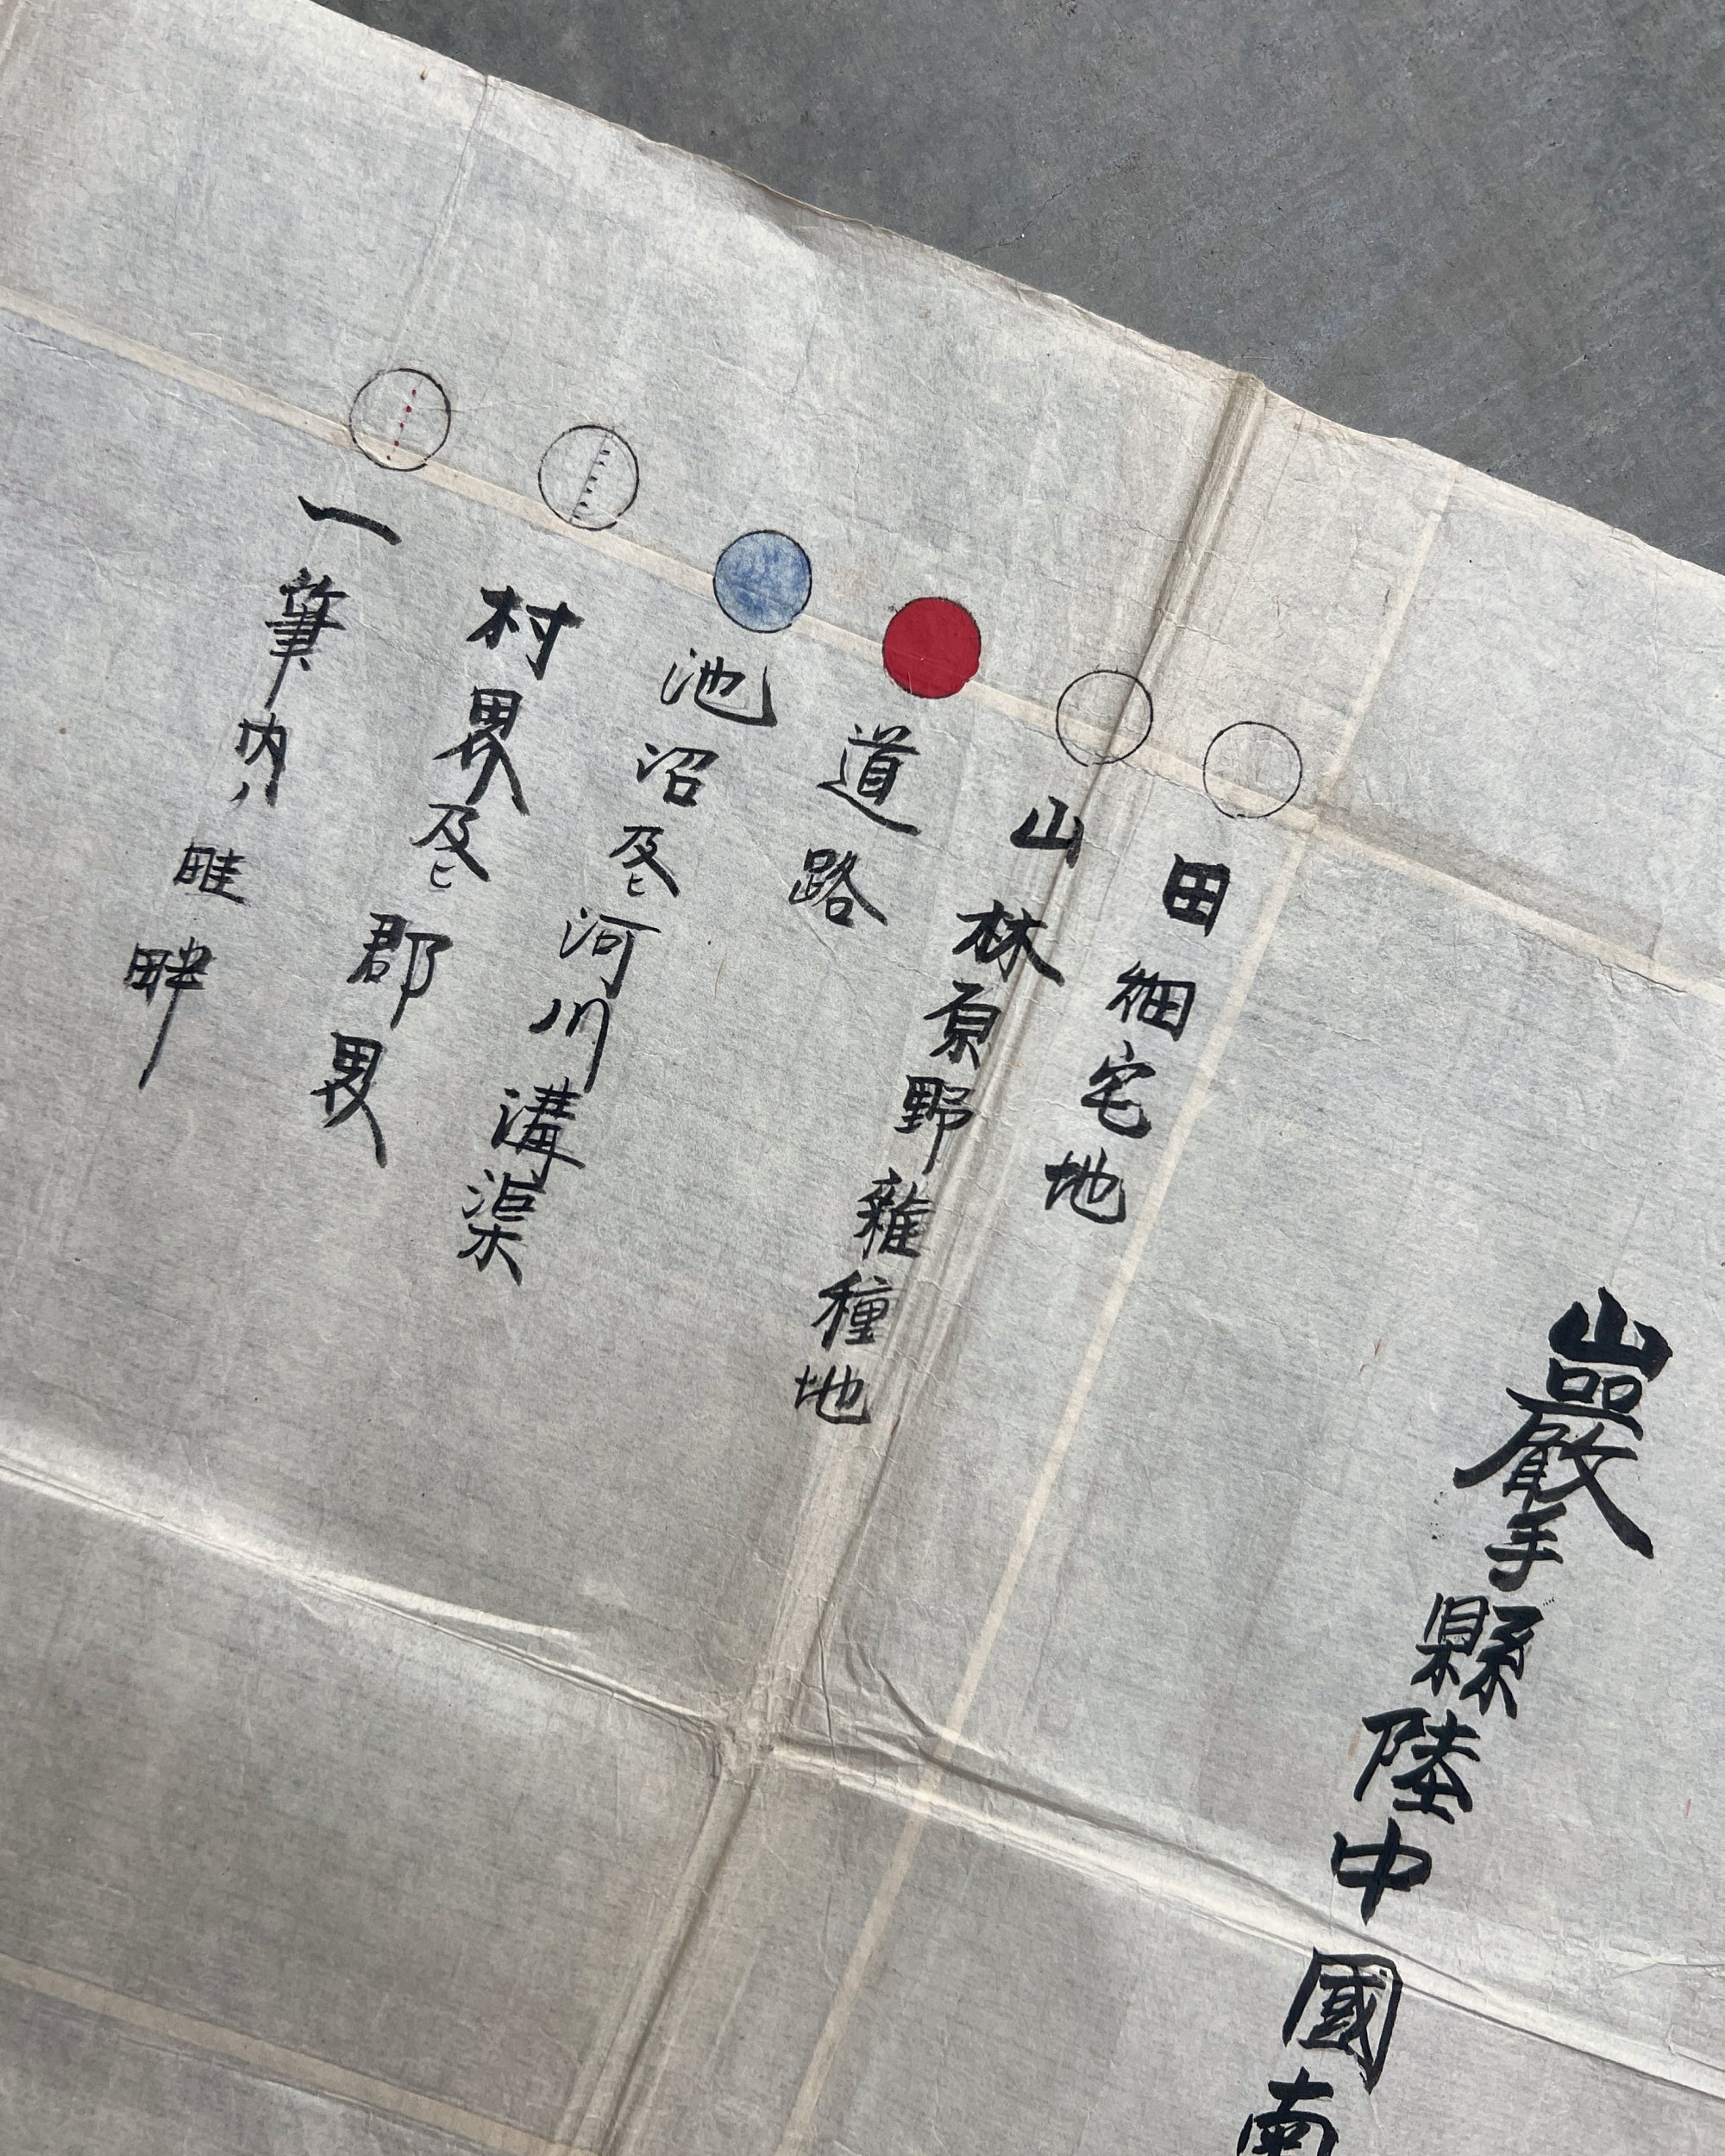 巖手縣陸中國南
田畑宅地
山林原野雜種地
道路
池沼及ヒ河川溝渠
村界及ヒ郡界
一筆内ハ畦畔